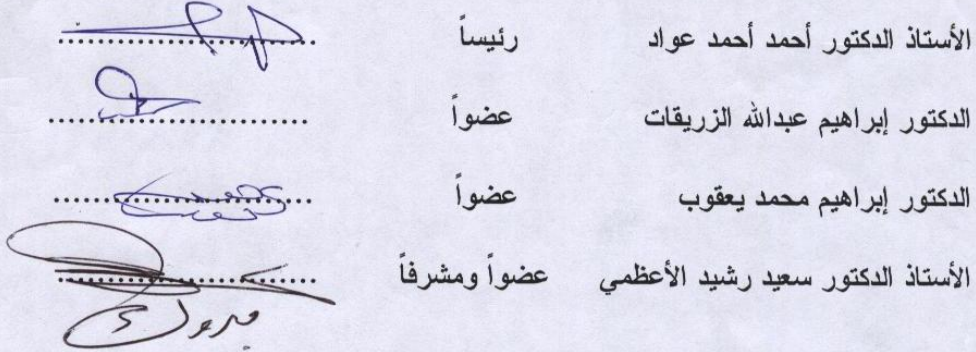 الأستاذ الدكتور أحمد أحمد عواد رئيساً ....................
الدكتور إبراهيم عبدالله الزريقات عضواً ....................
الدكتور إبراهيم محمد يعقوب عضواً ....................
الأستاذ الدكتور سعيد رشيد الأعظمي عضواً ومشرفاً ....................